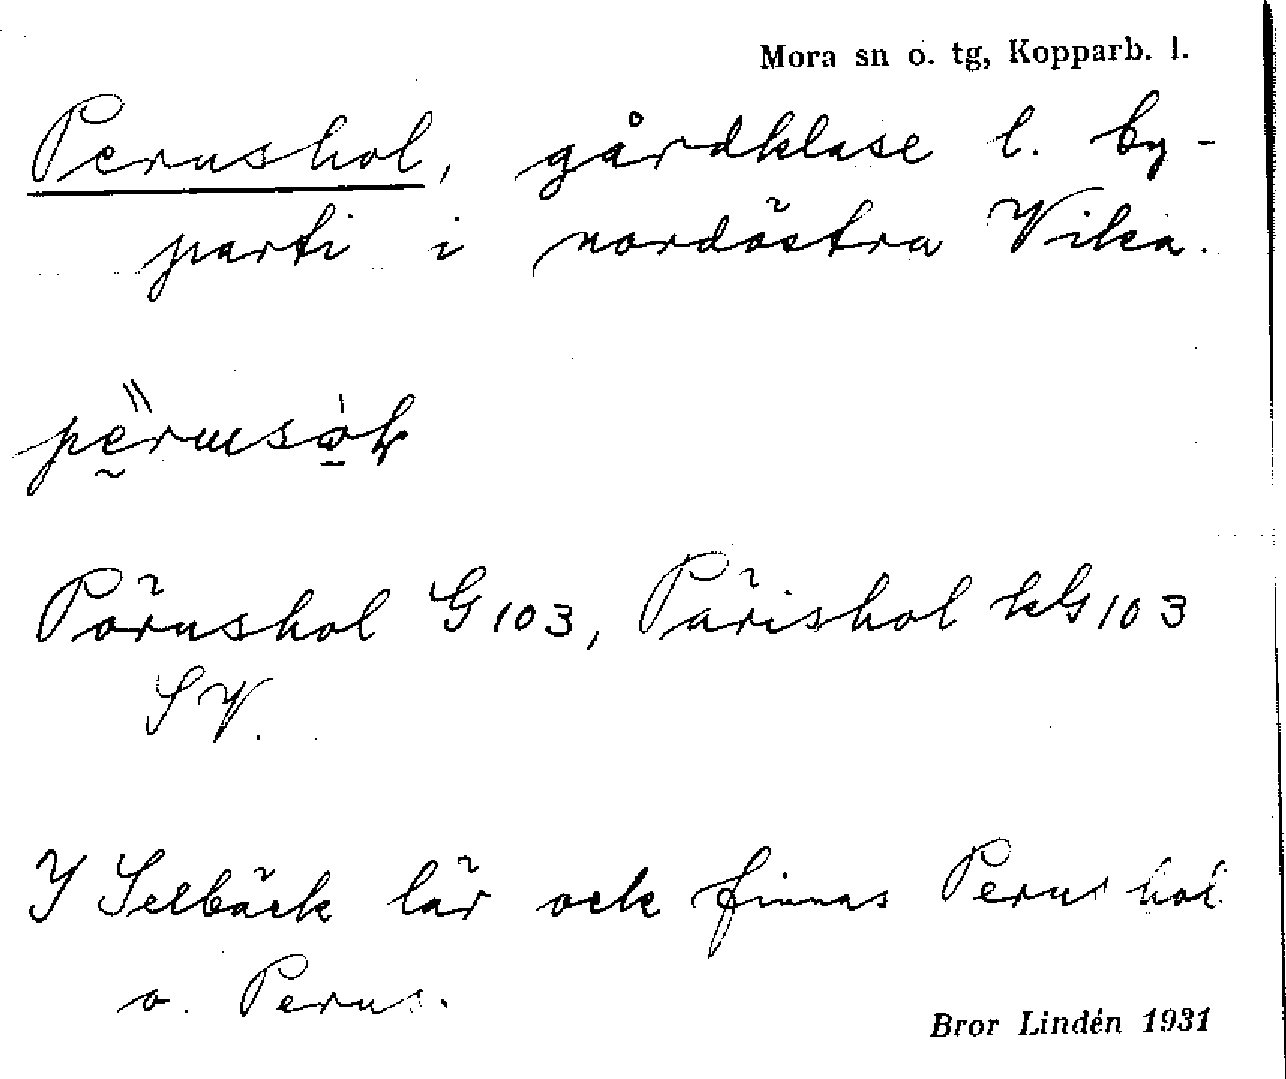 Mora sn o. tg, Kopparb. l.
Perushol, gårdklase l. by-
parti i nordöstra Vika.
Pörushol G103, Pärishol kG103
SV.
I Selbäck lär ock finnas Perushol
o. Perus.
Bror Lindén 1931